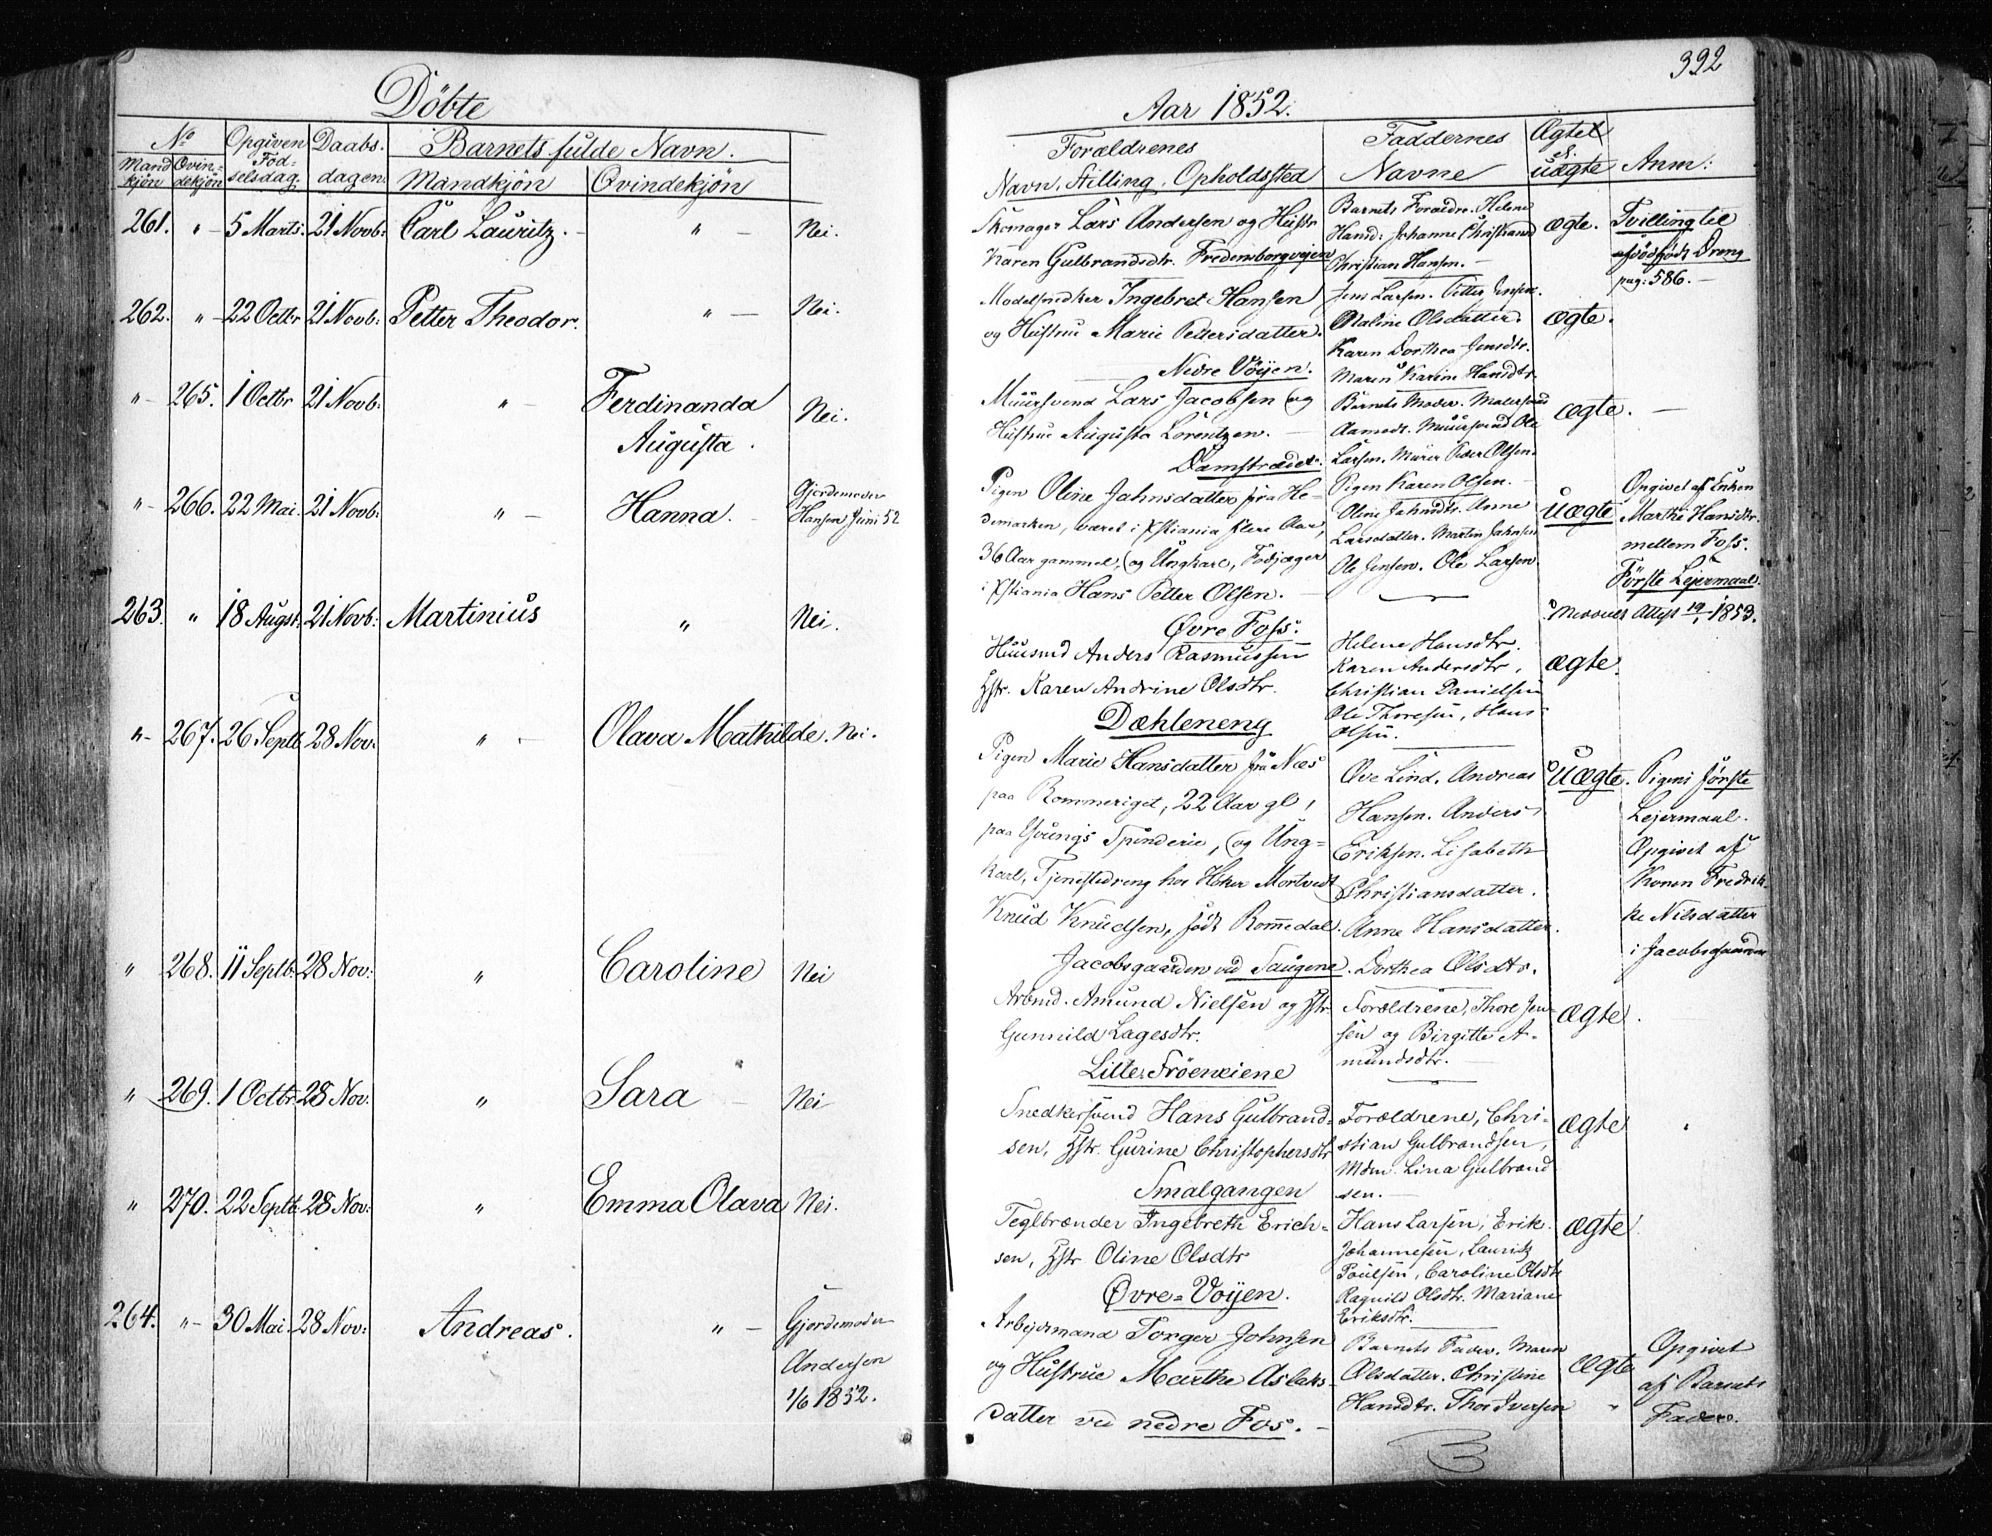 392
Döbte
Aar 1852.
No
Opgiven Födselsdag.
Daabsdagen.
Barnets fulde Navn.
Mandkjön
Qvindekjön
Mandkjön
Qvindekjön
Forældrenes
Navn, Stilling, Opholdssted
Faddernes
Navne
Ægte el. Uægte
Anm:
261. " — 5 Marts. 21 Novb: Carl Lauritz. — " — Nei.
Skomager Lars Andersen og Hustr
Karen Gulbrandsdtr. Fredensborgveien
Barnets Forældre. Helene
Hansd: Johanne Christiansd
Christian Hansen. —
Ægte.
Tvilling til
dödfödt Dreng
pag: 586. —
262. " — 22 Octbr 21 Novb: Petter Theodor. " — Nei.
Modelsnedker Ingebret Hansen
og Hustrue Marie Pettersdatter.
Nedre Vöyen.
Jens Larsen. Petter Jensen.
Maline Olsdatter.
Karen Dorthea Jensdtr.
Maren Karine Hansdtr.
Ægte.
" — 265. 1 Octbr 21 Novb: " — Ferdinanda
Augusta. Nei.
Muursvend Lars Jacobsen og
Hustrue Augusta Lorentzen. —
Damstrædet.
Barnets Moder. Malersvend
Aamodt. Muursvend Ole
Larsen. Murer Peder Olsen.
Pigen Karen Olsen. —
Ægte. —
" — 266. 22 Mai. 21 Novb: " — Hanna. — Gjordemoder
Hansen Juni 52
Pigen Oline Jahnsdatter fra He-
demarken, været i Xstiania flere Aar,
36 Aar gammel, og Ungkarl, Fodjæger
i Xstiania Hans Petter Olsen. —
Övre Foss.
Oline Jahnsdtr. Anne
Larsdatter. Martin Jahnsen
Ole Jensen. Ole Larsen.
Uægte
Opgivet af Enken
Marthe Hansdtr.
mellem Foss.
Förste Lejermaal.
Attest 19/1 1853.
263. " 18 Augst. 21 Novb: Martinius " Nei.
Huusmd Anders Rasmussen
Hstr. Karen Andrine Olsdtr.
Dæhleneng
Helene Hansdtr.
Karen Andersdtr,
Christian Danielsen
Ole Thoresen, Hans
Olsen.
Ægte.
" — 267. 26 Septb 28 Nov: " — Olava Mathilde. Nei.
Pigen Marie Hansdatter fra Næs
paa Rommeriget, 22 Aar gl,
paa Youngs Spinderie, og Ung-
karl, Tjenestedreng hos Höker Mortvedt
Knud Knudsen, födt Romedal.
Jacobsgaarden ved Saugene.
Ove Lind. Andreas
Hansen. Anders
Eriksen. Lisabeth
Christiansdatter.
Anne Hansdatter.
Dorthea Olsdtr.
Uægte.
Pigens förste
Lejermaal.
Opgivet af
Konen Fredrik-
ke Nilsdatter
i Jacobsgaarden
" 268. 11 Septb: 28 Nov: " Caroline Nei
Arbmd. Amund Nielsen og Hstr.
Gunnild Lagesdtr.
Lille Fröenseiene
Forældrene, Thore Jen-
sen og Birgitte A-
mundsdtr. —
Ægte.
" 269. 1 Octbr 28 Nov: " Sara — Nei
Snedkersvend Hans Gulbrand-
sen, Hstr. Gurine Christophersdtr
Smalgangen
Forældrene, Chri-
stian Gulbrandsen,
Mdm. Lina Gulbrand
sen. —
Ægte
" 270. 22 Septb: 28 Nov: " Emma Olava Nei.
Teglbrænder Ingebreth Erich-
sen, Hstr Oline Olsdtr
Övre-Voyen.
Hans Larsen, Erik
Johannesen, Lauritz
Poulsen, Caroline Olsdtr
Ragnild Olsdtr. Mariane
Eriksdtr.
Ægte
264. " — 30 Mai. 28 Nov: Andreas. " — Gjordemoder
Andersen
1/6 1852.
Arbejdsmand Torger Johnsen
og Hustrue Marthe Aslaks-
datter ved nedre Fos. —
Barnets Fader. Maren
Olsdatter. Christine
Hansdtr. Thor Iversen
Ægte
Opgivet
af Barnets
Fader.